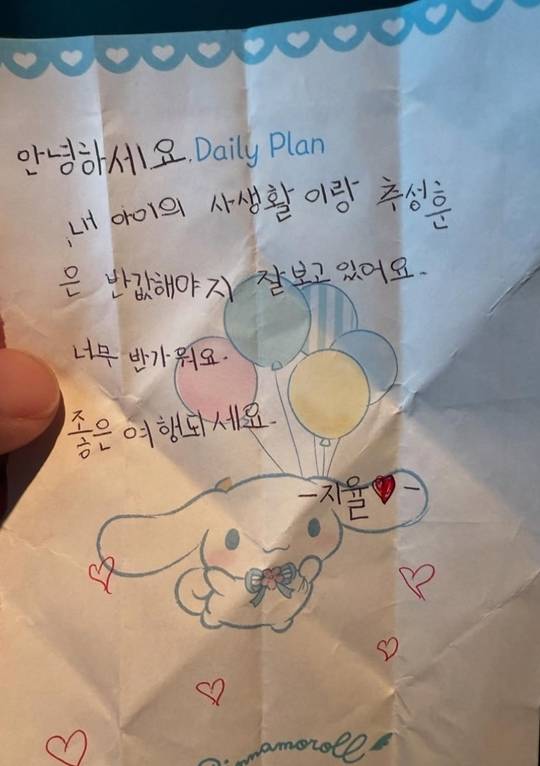 안녕하세요. Daily Plan
내 아이의 사생활 이랑 추성훈
은 반값해야지 잘보고있어요.
너무 반가워요.
좋은 여행되세요.
-지율♥-
Cinnamoroll